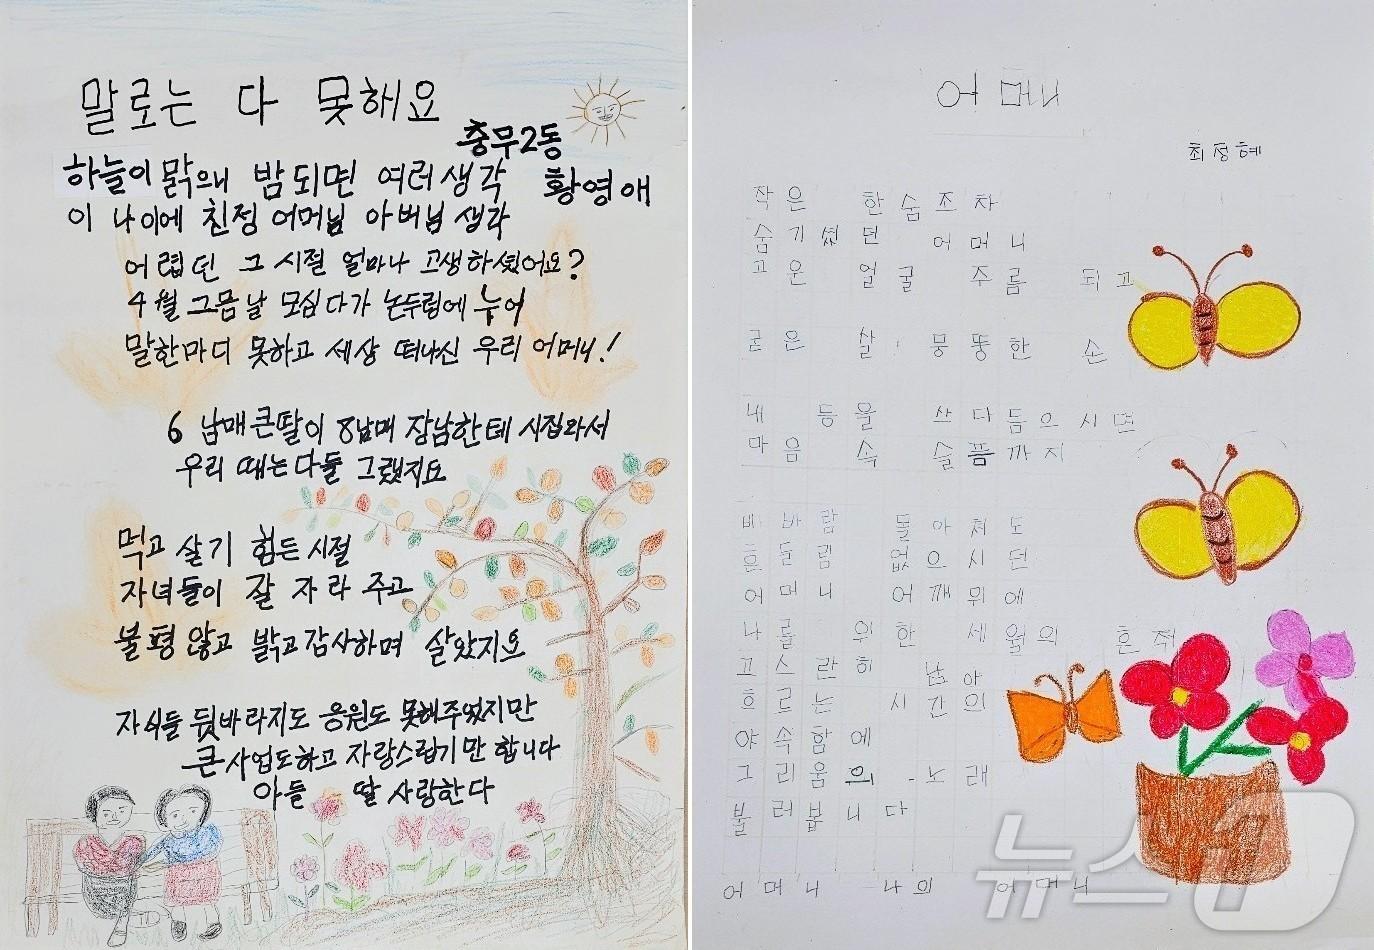 말로는 다 못해요
충무2동
황영애
하늘이 맑으니 밤되면 여러생각
이 나이에 친정 어머님 아버님 생각
어렵던 그 시절 얼마나 고생하셨어요?
4월 그믐날 모심다가 논두렁에 누어
말한마디 못하고 세상 떠나신 우리 어머니!
6남매큰딸이 8남매 장남한테 시집와서
우리 때는 다들 그랬지요
먹고 살기 힘든시절
자녀들이 잘 자라 주고
불평않고 밝고감사하며 살았지요
자식들 뒷바라지도 응원도 못해주었지만
큰사업도하고 자랑스럽기만 합니다
아들 딸 사랑한다
어머니
최정혜
작은 한숨조차
숨기셨던 어머니
고운 얼굴 주름 되고
굳은 살 뭉뚱한 손
내 등을 쓰다듬으시면
마음 속 슬픔까지
비바람 몰아쳐도
흔들림 없으시던
어머니 어깨위에
나를 위한 세월의 흔적
고스란히 남아
흐르는 시간의
야속함에
그리움의 노래
불러봅니다
어머니 나의 어머니
뉴스1